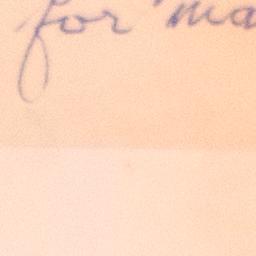 for ma